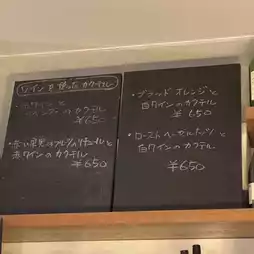 ワインを使ったカクテル
・白ワインと
のカクテル
¥650
・赤い果実のフルーツのリキュールと
赤ワインのカクテル
¥650
・ブラッドオレンジと
白ワインのカクテル
¥650
・ローストヘーゼルナッツと
白ワインのカクテル
¥650